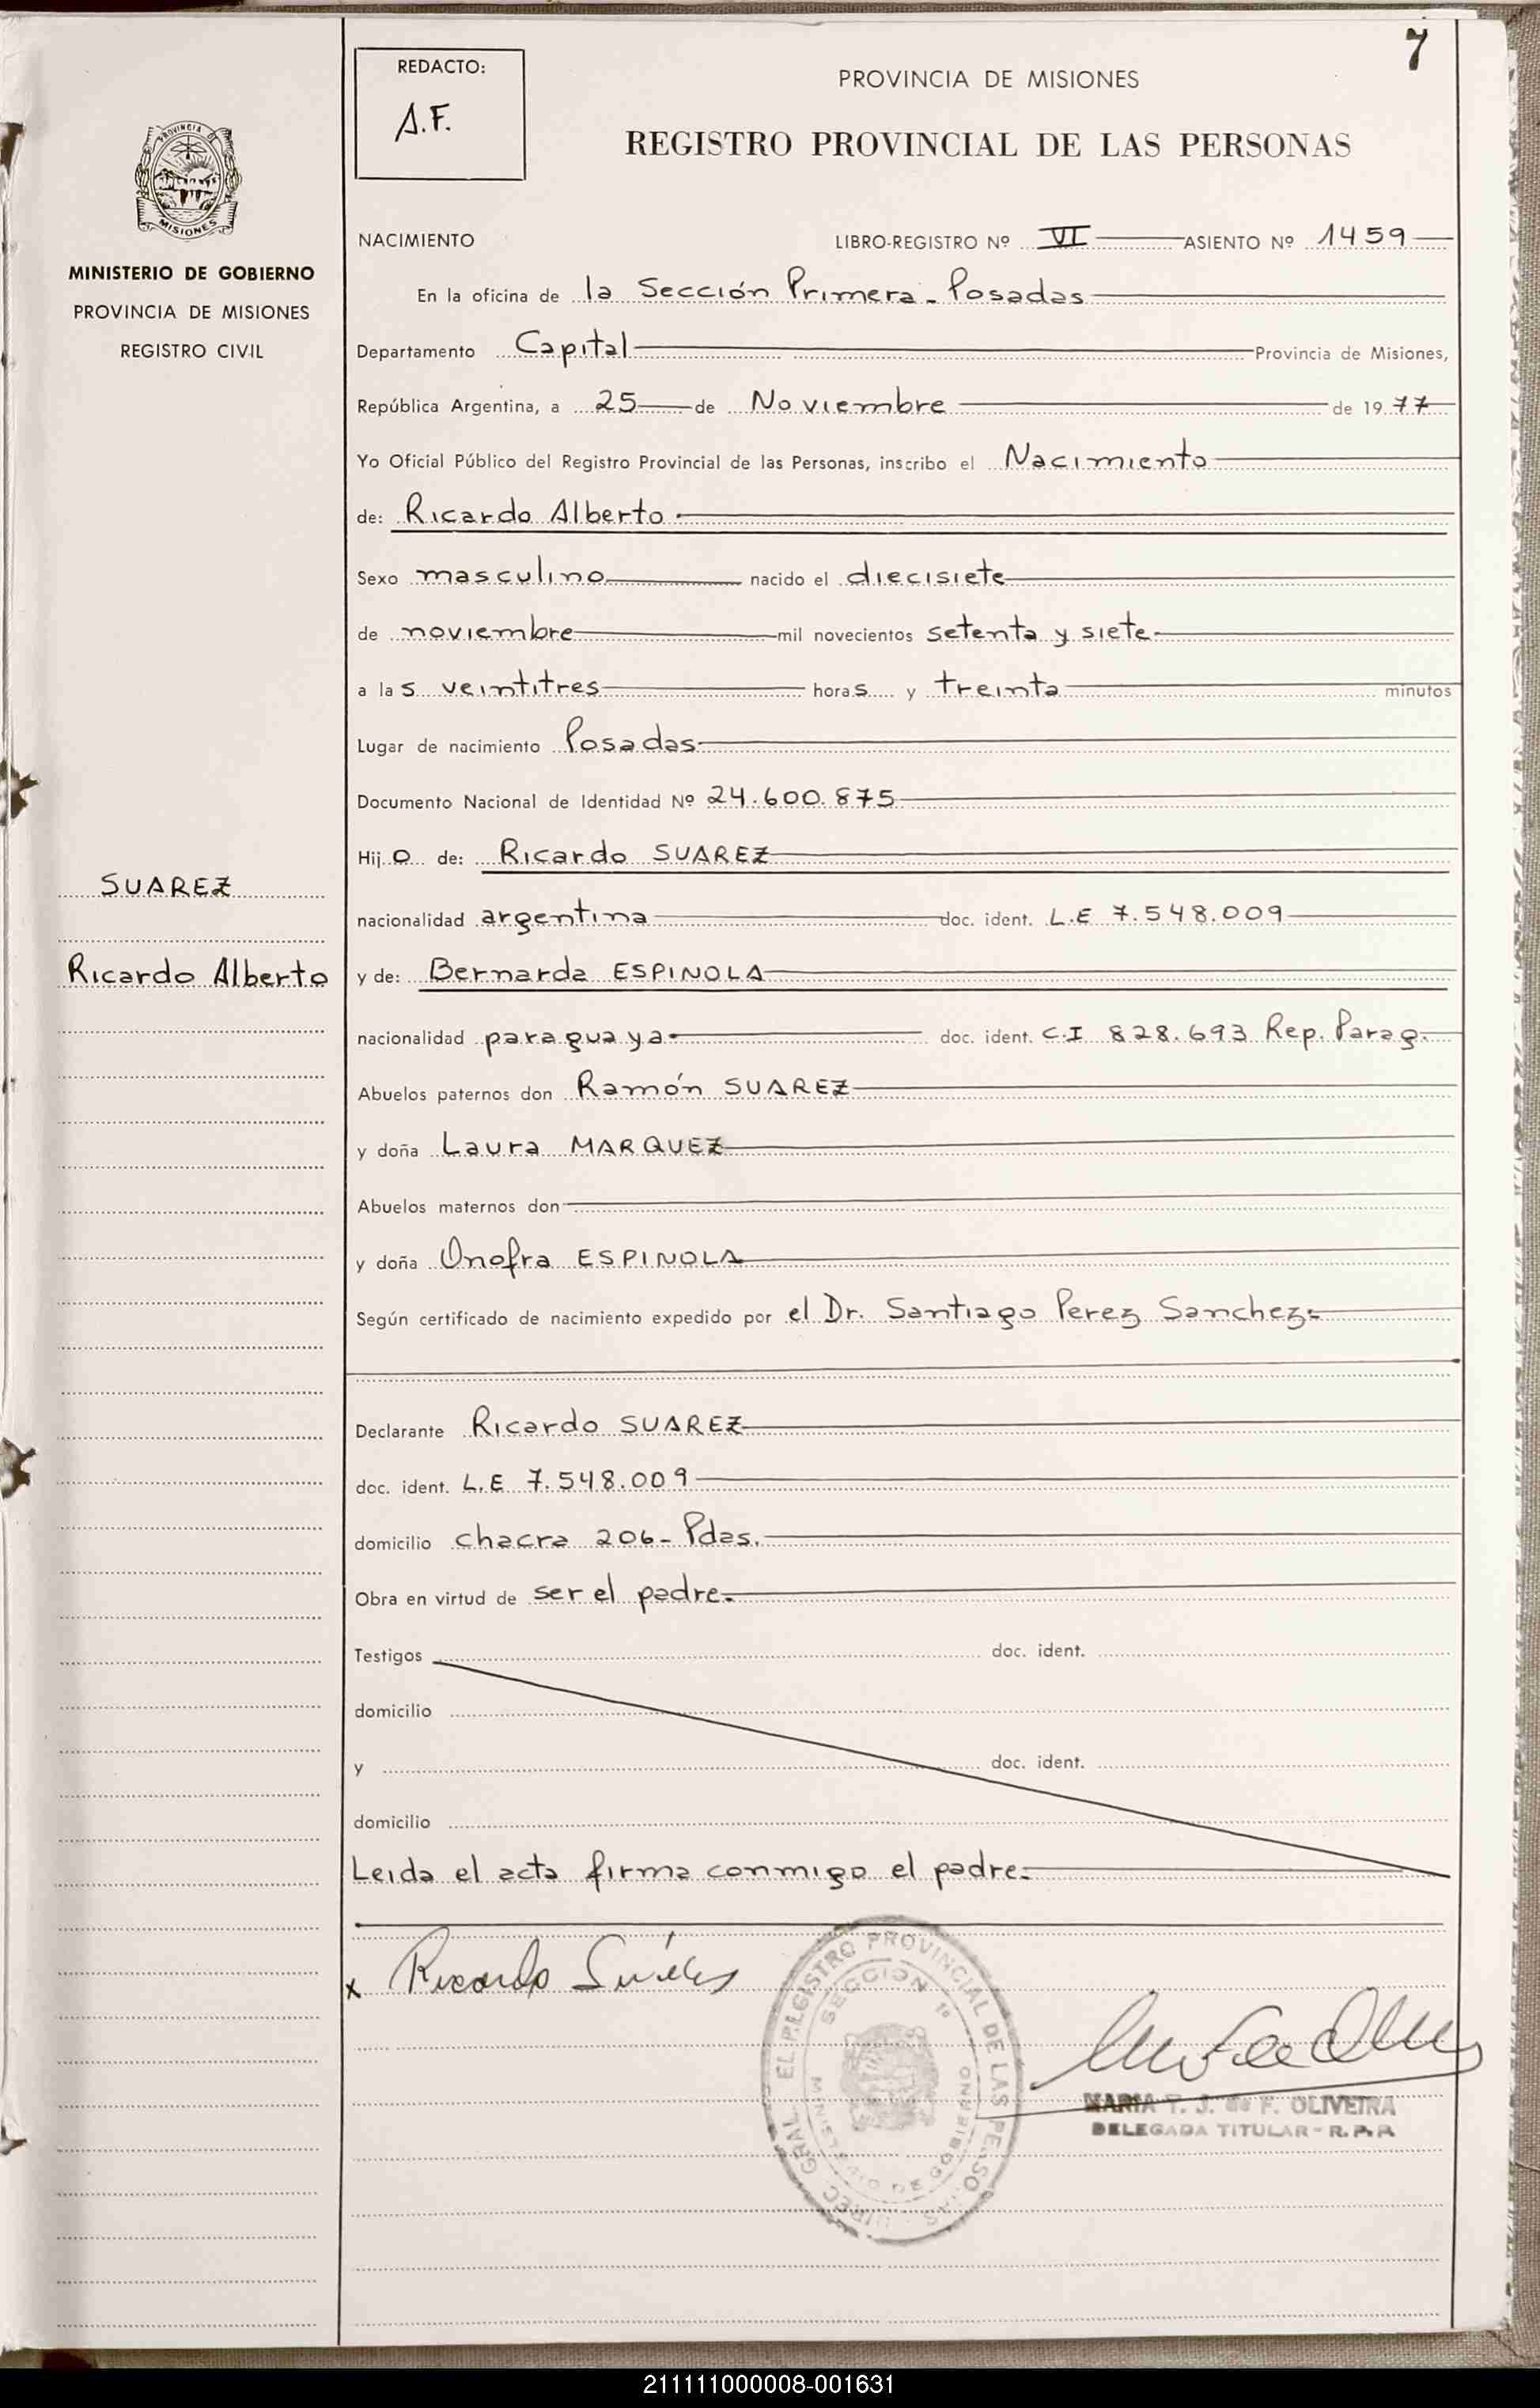 7
REDACTO:
A.F.
PROVINCIA DE MISIONES
REGISTRO PROVINCIAL DE LAS PERSONAS
PROVINCIA DE
MISIONES
MINISTERIO DE GOBIERNO
PROVINCIA DE MISIONES
REGISTRO CIVIL
SUAREZ
Ricardo Alberto
NACIMIENTO LIBRO-REGISTRO Nº VI ASIENTO Nº 1459
En la oficina de la Sección Primera - Posadas
Departamento Capital Provincia de Misiones,
República Argentina, a 25 de Noviembre de 1977
Yo Oficial Público del Registro Provincial de las Personas, inscribo el Nacimiento
de: Ricardo Alberto
Sexo masculino nacido el diecisiete
de noviembre mil novecientos setenta y siete
a las veintitres horas y treinta minutos
Lugar de nacimiento Posadas
Documento Nacional de Identidad Nº 24.600.875
Hijo de: Ricardo SUAREZ
nacionalidad argentina doc. ident. L.E 7.548.009
y de: Bernarda ESPINOLA
nacionalidad paraguaya doc. ident. C.I 828.693 Rep. Parag.
Abuelos paternos don Ramón SUAREZ
y doña Laura MARQUEZ
Abuelos maternos don
y doña Onofra ESPINOLA
Según certificado de nacimiento expedido por el Dr. Santiago Perez Sanchez
Declarante Ricardo SUAREZ
doc. ident. L.E 7.548.009
domicilio chacra 206 - Pdas.
Obra en virtud de ser el padre.
Testigos doc. ident.
domicilio
y doc. ident.
domicilio
Leida el acta firma conmigo el padre.
x Ricardo Suárez
REGISTRO PROVINCIAL DE LAS PERSONAS
SECCION 1ª
MARIA T. J. de F. OLIVEIRA
DELEGADA TITULAR - R.P.P.
211111000008-001631